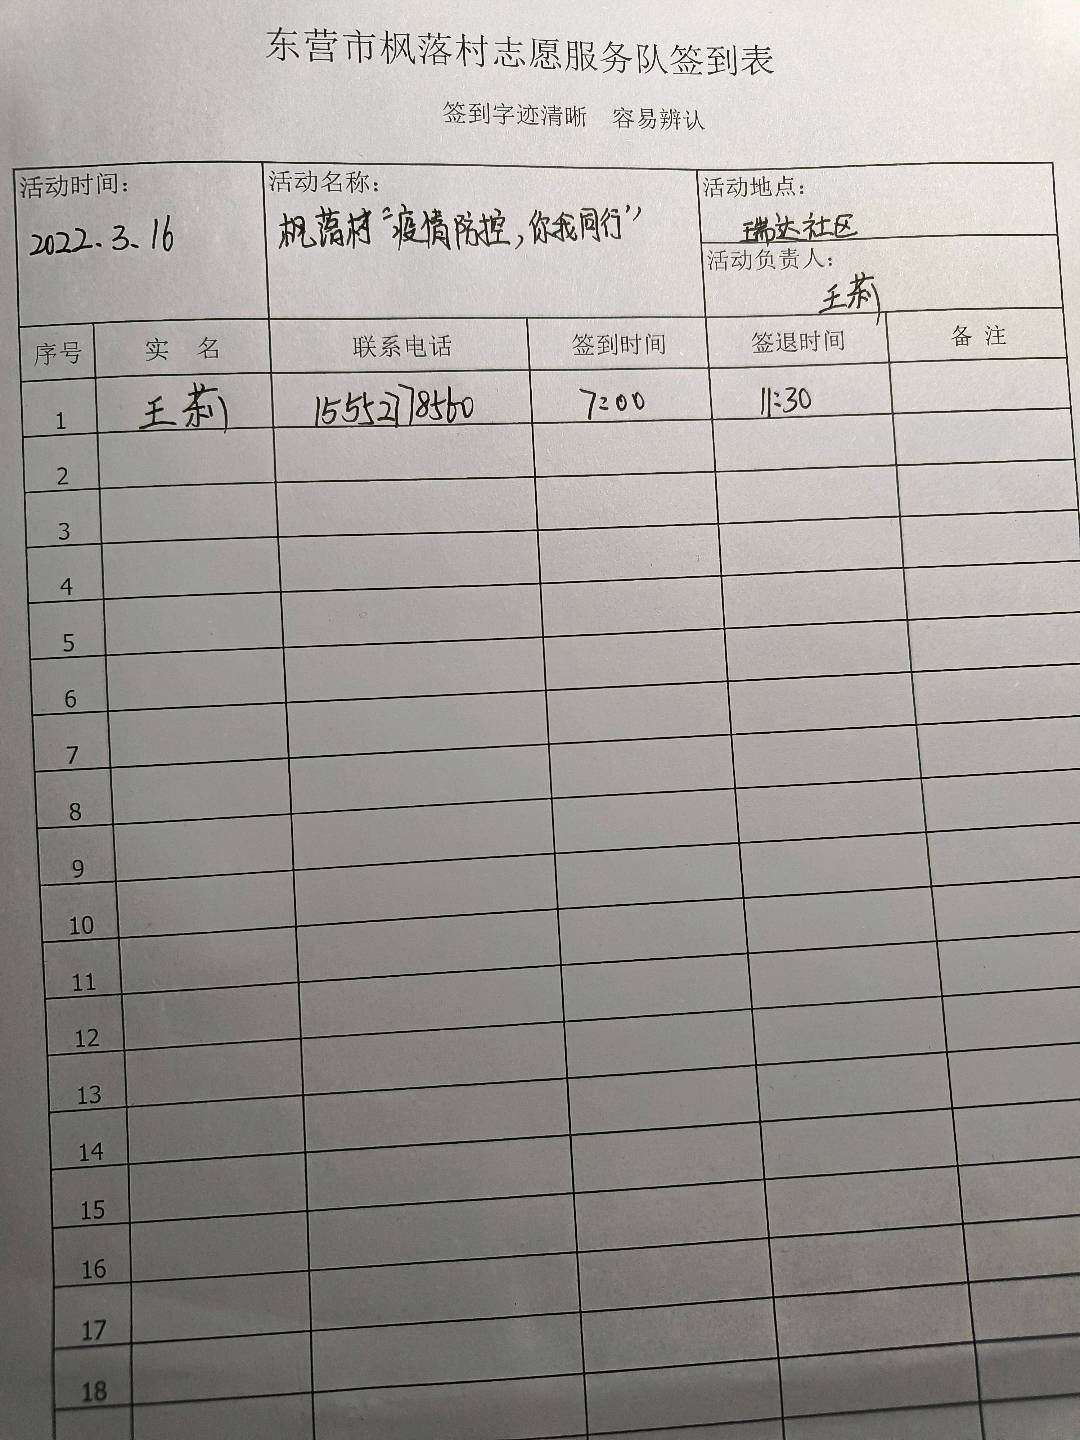 东营市枫落村志愿服务队签到表
签到字迹清晰 容易辨认
活动时间： 活动名称： 活动地点：
2022.3.16 枫落村“疫情防控，你我同行” 瑞达社区
活动负责人：
王莉
序号 实 名 联系电话 签到时间 签退时间 备 注
1 王莉 15552778560 7:00 11:30
2
3
4
5
6
7
8
9
10
11
12
13
14
15
16
17
18